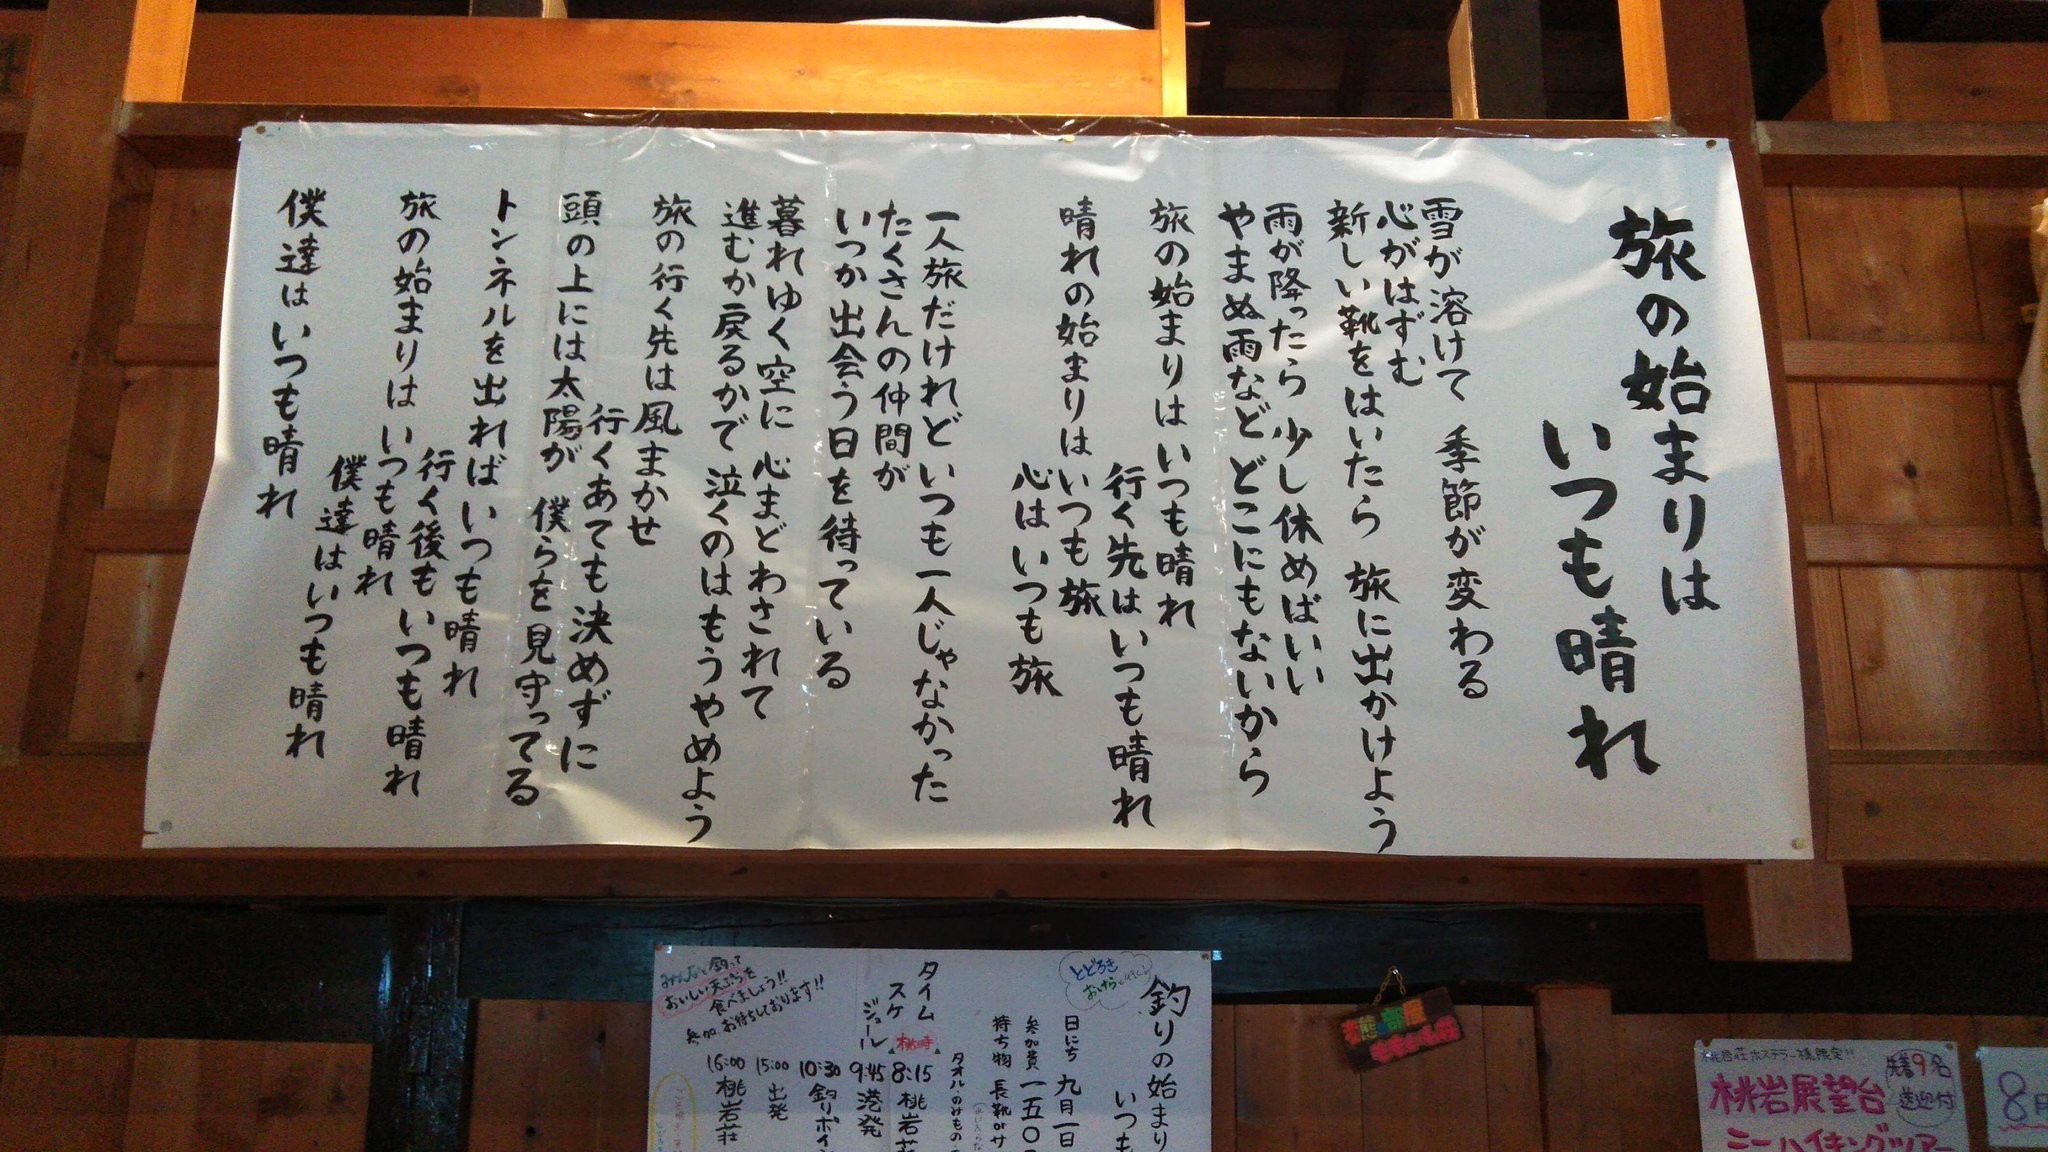 旅の始まりは
いつも晴れ
雪が溶けて 季節が変わる
心がはずむ
新しい靴をはいたら 旅に出かけよう
雨が降ったら 少し休めばいい
やまぬ雨など どこにもないから
旅の始まりはいつも晴れ
行く先はいつも晴れ
晴れの始まりは いつも旅
心はいつも旅
一人旅だけれど いつも一人じゃなかった
たくさんの仲間が
いつか出会う日を待っている
暮れゆく空に 心まどわされて
進むか戻るかで 泣くのはもうやめよう
旅の行く先は風まかせ
行くあても決めずに
頭の上には太陽が 僕らを見守ってる
トンネルを出れば いつも晴れ
行く後も いつも晴れ
旅の始まりは いつも晴れ
僕達はいつも晴れ
僕達はいつも晴れ
とどろき
釣りの始まり
いつも
日にち 九月一日
参加費 一五〇
持ち物 長靴
タオル のみもの
タイム
スケ
ジュール
桃時
8:15 桃岩荘
9:45 港発
10:30 釣りポイン
15:00 出発
16:00 桃岩荘
みんなで釣って
おいしい天ぷらを
食べましょう!!
参加お待ちしております!!
桃岩荘ホステラー様限定!!
先着9名
送迎付
桃岩展望台
ミニハイキングツアー
8月